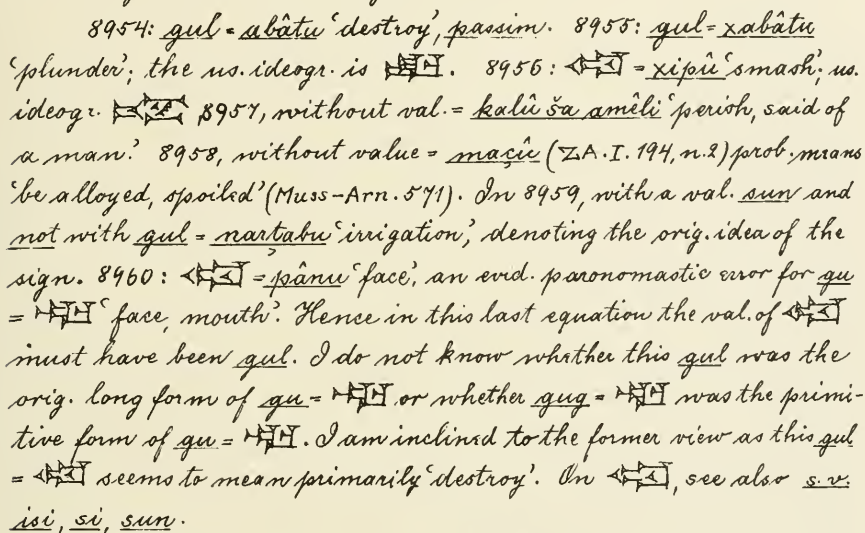 8954: gul = abâtu ‘destroy’, passim. 8955: gul = xabâtu
‘plunder’; the us. ideogr. is . 8956: = xipû ‘smash’; us.
ideogr. 8957, without val. = kalû ša amêli ‘perish, said of
a man.’ 8958, without value = maçû (ZA. I. 194, n.2) prob. means
‘be alloyed, spoiled’ (Muss-Arn. 571). In 8959, with a val. sun and
not with gul = narṭabu ‘irrigation’, denoting the orig. idea of the
sign. 8960: = pânu ‘face’, an evid. paronomastic error for gu
= ‘face, mouth’. Hence in this last equation the val. of
must have been gul. I do not know whether this gul was the
orig. long form of gu = or whether gug = was the primi-
tive form of gu = . I am inclined to the former view as this gul
= seems to mean primarily ‘destroy’. On , see also s.v.
isi, si, sun.